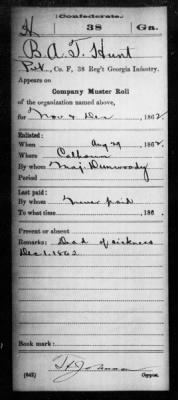 Confederate.
H 38 Ga.
B. A. T. Hunt
Pvt., Co. F, 38 Reg't Georgia Infantry.
Appears on
Company Muster Roll
of the organization named above,
for Nov & Dec, 1862
Enlisted:
When Aug 29, 1862
Where Calhoun
By whom Maj. Dunwoody
Period
Last paid:
By whom Never paid
To what time , 186 .
Present or absent
Remarks: Dead of sickness
Dec 1. 1862
Book mark:
(642) Copyist.